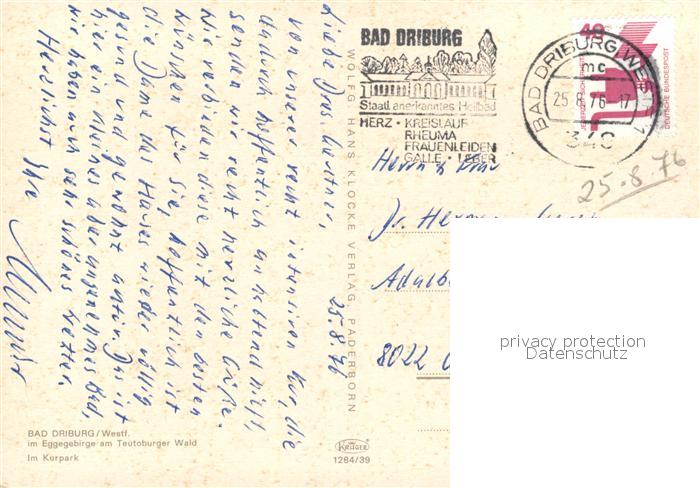 BAD DRIBURG
Staatl. anerkanntes Heilbad
HERZ • KREISLAUF
RHEUMA
FRAUENLEIDEN
GALLE • LEBER
40
JEDERZEIT SICHERHEIT
DEUTSCHE BUNDESPOST
BAD DRIBURG, WESTF 1
mc
25.-8.76.-17
349
25.8.76
25.8.76
von unserer recht intensiven Kur, die
uns hoffentlich an
senden wir recht herzliche Grüße.
Wir verbinden diese mit den besten
Wünschen für Sie, hoffentlich ist
die Dame des Hauses wieder völlig
gesund und gewohnt aktiv. Das ist
hier ein kleines aber angenehmes Bad,
wir haben auch sehr schönes Wetter.
Herzlichst Ihre
Herrn u. Frau
Dr.
Adalb
8022
WOLFG. HANS KLOCKE VERLAG PADERBORN
privacy protection
Datenschutz
BAD DRIBURG/Westf.
im Eggegebirge am Teutoburger Wald
Im Kurpark
KRÜGER
1284/39